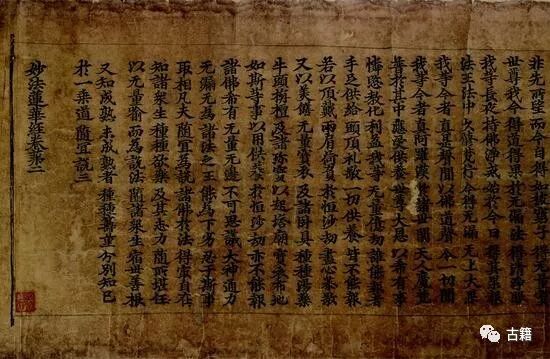 非先所望 而今自得 如彼窮子 得无量寶
世尊我今 得道得果 於无漏法 得清淨眼
我等長夜 持佛淨戒 始於今日 得其果報
法王法中 久修梵行 今得无漏 无上大果
我等今者 真是聲聞 以佛道聲 令一切聞
我等今者 真阿羅漢 於諸世間 天人魔梵
普於其中 應受供養 世尊大恩 以希有事
憐愍教化 利益我等 无量億劫 誰能報者
手足供給 頭頂礼敬 一切供養 皆不能報
若以頂戴 兩肩荷負 於恒沙劫 盡心恭敬
又以美饍 无量寶衣 及諸臥具 種種湯藥
牛頭栴檀 及諸珍寶 以起塔廟 寶衣布地
如斯等事 以用供養 於恒沙劫 亦不能報
諸佛希有 无量无邊 不可思議 大神通力
无漏无為 諸法之王 能為下劣 忍于斯事
取相凡夫 隨宜為說 諸佛於法 得冣自在
知諸眾生 種種欲樂 及其志力 隨所堪任
以无量喻 而為說法 隨諸眾生 宿世善根
又知成熟 未成熟者 種種籌量 分別知已
於一乘道 隨宜說三
妙法蓮華經卷第二
古籍